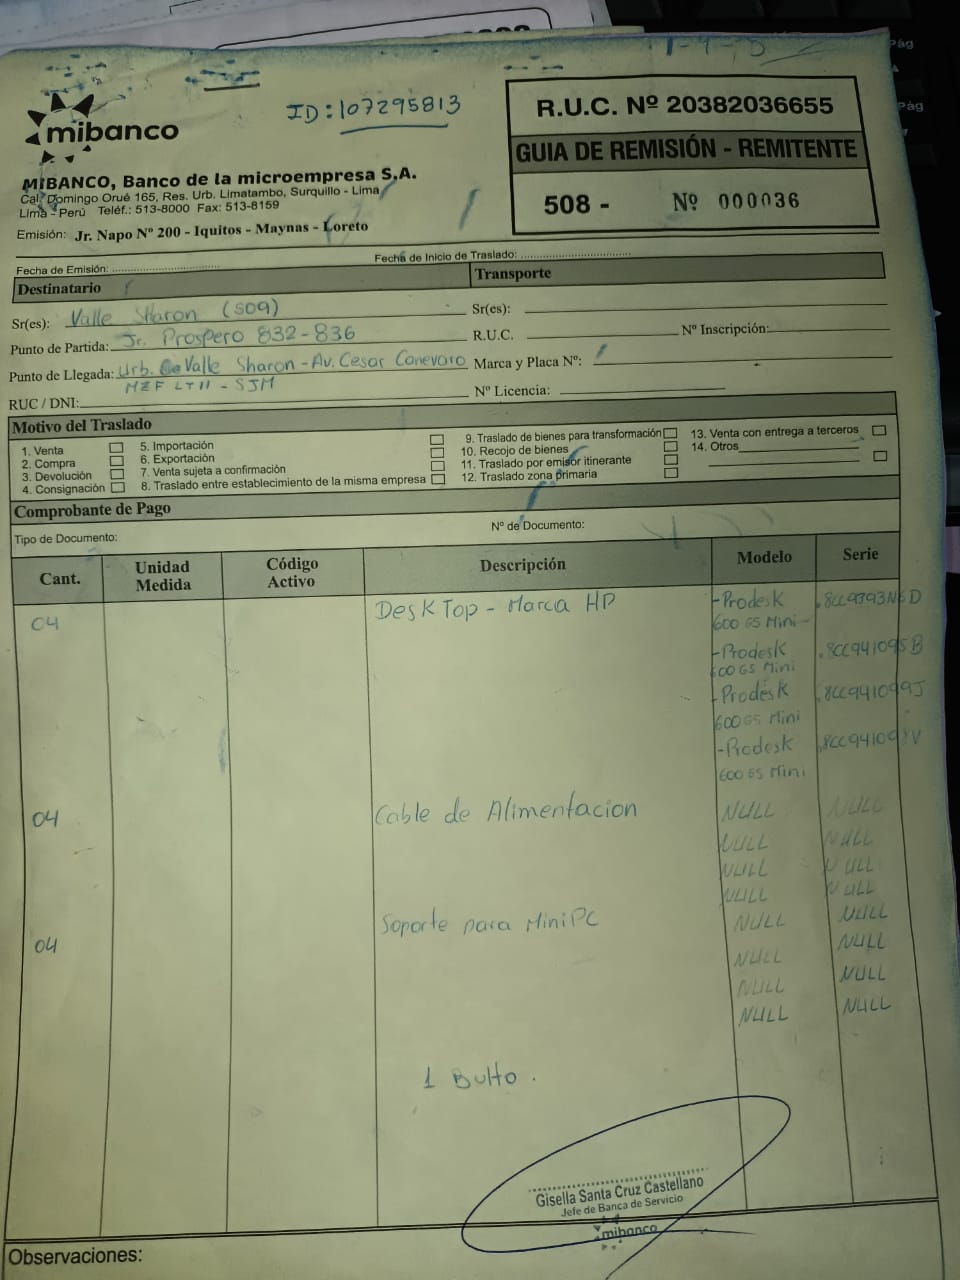 ID: 107295813
mibanco
MIBANCO, Banco de la microempresa S.A.
Cal. Domingo Orué 165, Res. Urb. Limatambo, Surquillo - Lima
Lima - Perú Teléf.: 513-8000 Fax: 513-8159
Emisión: Jr. Napo Nº 200 - Iquitos - Maynas - Loreto
R.U.C. Nº 20382036655
GUIA DE REMISIÓN - REMITENTE
508 - Nº 000036
Fecha de Emisión: Fecha de Inicio de Traslado:
Destinatario Transporte
Sr(es): Valle Sharon (509) Sr(es):
Punto de Partida: Jr. Prospero 832-836 R.U.C. Nº Inscripción:
Punto de Llegada: Urb. Valle Sharon - Av. Cesar Canevaro Marca y Placa Nº:
MZF LT11 - SJM
RUC / DNI: Nº Licencia:
Motivo del Traslado
1. Venta 5. Importación 9. Traslado de bienes para transformación 13. Venta con entrega a terceros
2. Compra 6. Exportación 10. Recojo de bienes 14. Otros
3. Devolución 7. Venta sujeta a confirmación 11. Traslado por emisor itinerante
4. Consignación 8. Traslado entre establecimiento de la misma empresa 12. Traslado zona primaria
Comprobante de Pago
Tipo de Documento: Nº de Documento:
Cant. Unidad Medida Código Activo Descripción Modelo Serie
04 DeskTop - Marca HP -Prodesk
600 G5 Mini
-Prodesk .8CC941095B
600 G5 Mini
-Prodesk .8CC941099J
600 G5 Mini
-Prodesk
600 G5 Mini
04 Cable de Alimentacion NULL NULL
NULL NULL
NULL NULL
NULL NULL
04 Soporte para MiniPC NULL NULL
NULL NULL
NULL NULL
NULL NULL
1 Bulto.
Gisella Santa Cruz Castellano
Jefe de Banca de Servicio
mibanco
Observaciones: